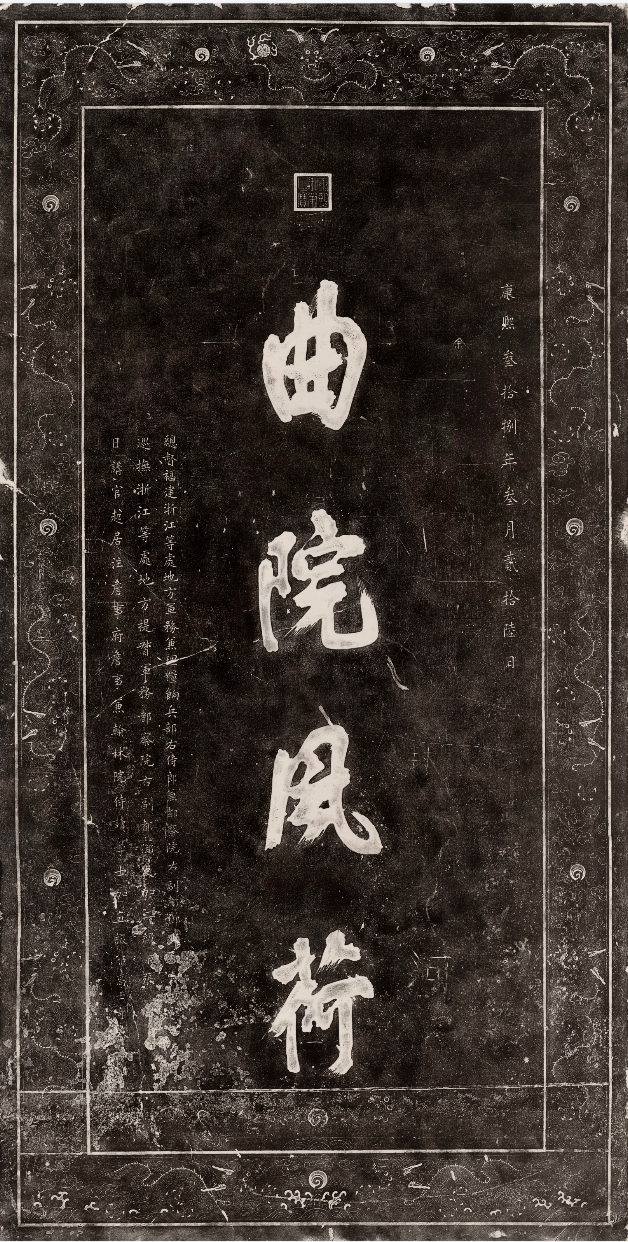 康熙叁拾捌年叁月貳拾陸日
曲院風荷
總督福建浙江等處地方軍務兼理糧餉兵部右侍郎兼都察院右副都
巡撫浙江等處地方提督軍務都察院右副都
日講官起居注詹事府詹事兼翰林院侍